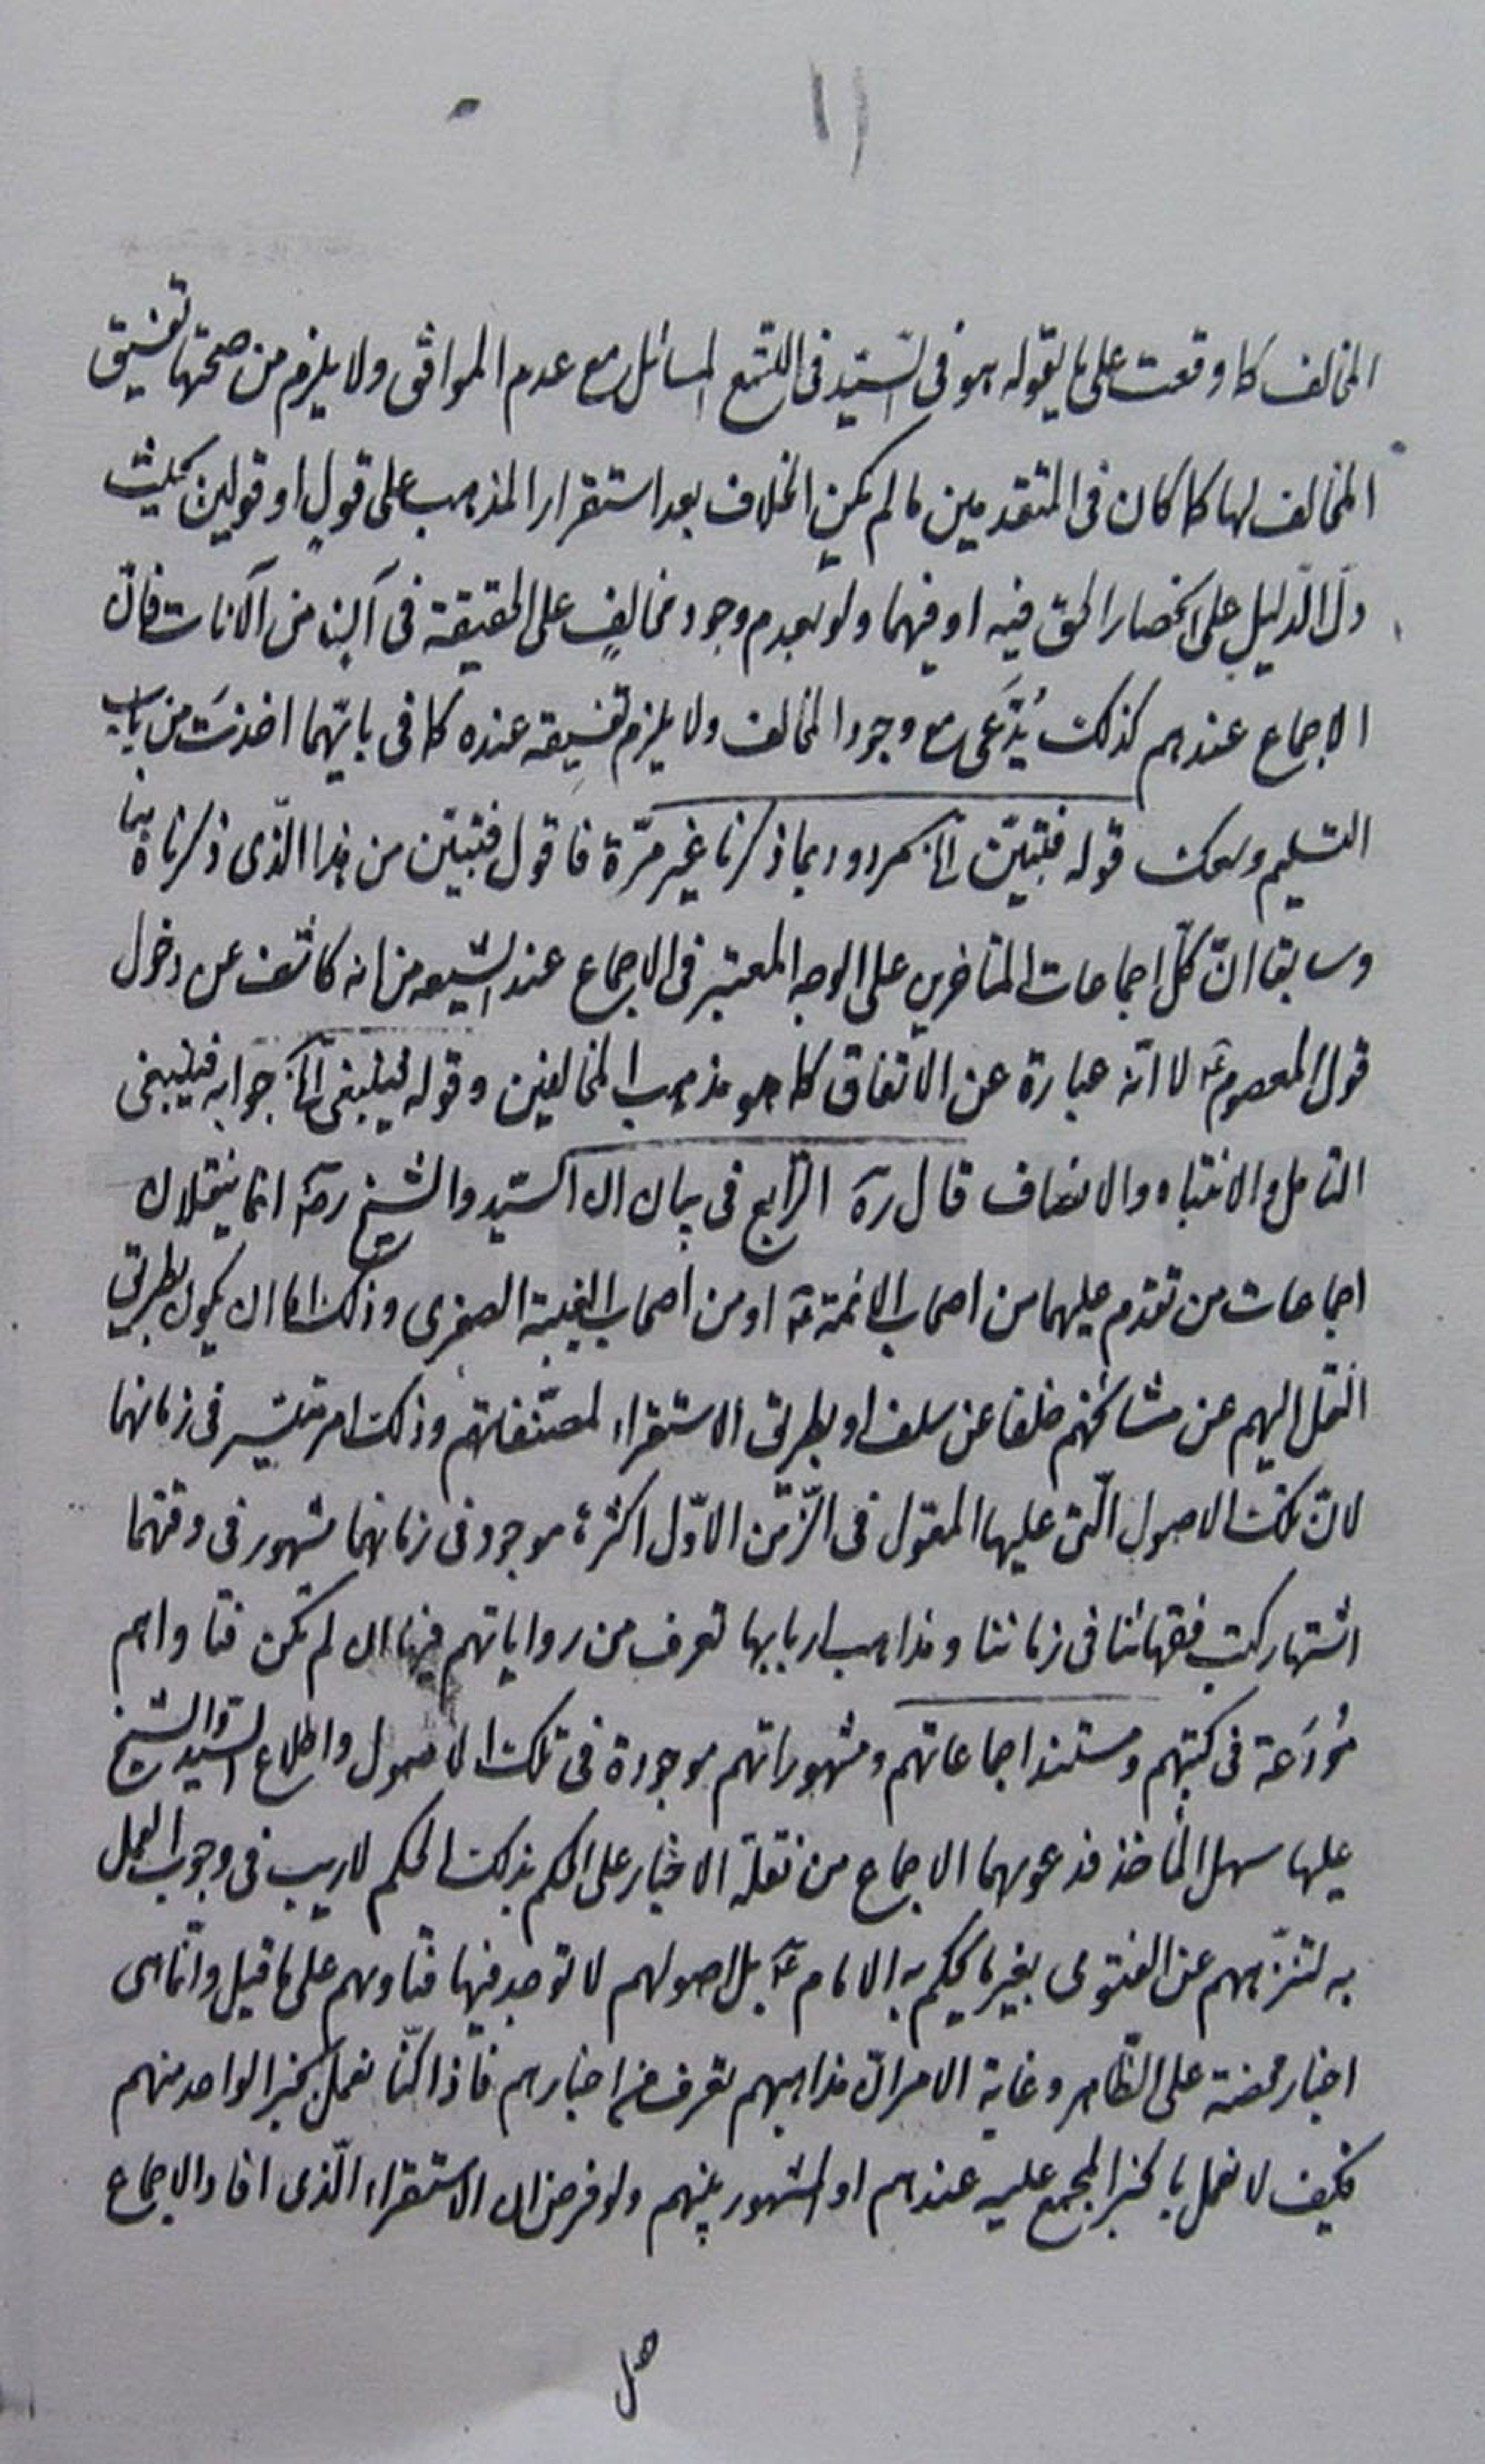 المخالف كما وقعت على ما يقوله هو فى السّيّد فى اللتتبع المسائل مع عدم الموافق ولا يلزم من صحتها تفسيق
المخالف لها كما كان فى المتقدمين ما لم يكن الخلاف بعد استقرار المذهب على قولٍ او قولين بحيث
دلّ الدّليل على انحصار الحق فيه او فيهما ولو بعدم وجود مخالفٍ على الحقيقة فى آن من الآنات فانّ
الاجماع عندهم كذلك يُدَّعى مع وجود المخالف ولا يلزم تفسيقه عنده كما فى بايّهما اخذتَ من باب
التسليم وسعك قوله فتبيّن الخ مردود بما ذكرنا غير مرّة فاقول فتبيّن من هذا الّذى ذكرناه هنا
وسابقا انّ كلّ اجماعات المتاخرين على الوجه المعتبر فى الاجماع عند الشيعه من انه كاشف عن دخول
قول المعصوم ع لا انّه عبارة عن الاتّفاق كما هو مذهب المخالفين وقوله فينبغى الخ جوابه فينبغى
التامل والانتباه والانصاف قال ره الرّابع فى بيان ان السّيّد والشيخ ره انما ينقلان
اجماعات من تقدم عليهما من اصحاب الائمة ع او من اصحاب الغيبة الصغرى وذلك اما ان يكون بطريق
النقل اليهم عن مشائخهم خلفا عن سلف او بطريق الاستقراء لمصنّفاتهم وذلك امر متيسّر فى زمانهما
لانّ تلك الاصول الّتى عليها المعوّل فى الزّمن الاوّل اكثرها موجود فى زمانهما مشهور فى وقتهما
اشتهار كتب فقهائنا فى زماننا ومذاهب اربابها تعرف من رواياتهم فيها ان لم تكن فتاواهم
مُودَعة فى كتبهم ومستند اجماعاتهم ومشهوراتهم موجودة فى تلك الاصول واطلاع السّيّد والشيخ
عليها سهل المأخذ فدعويهما الاجماع من نقلة الاخبار على الحكم بذلك الحكم لا ريب فى وجوب العمل
به لتنزّههم عن الفتوى بغير ما يحكم به الامام ع بل اصولهم لا توجد فيها فتاويهم على ما قيل وانّما هى
اخبار محضة على الظّاهر وغاية الامر انّ مذاهبهم تعرف من اخبارهم فاذا كنّا نعمل بخبر الواحد منهم
فكيف لا نعمل بالخبر المجمع عليه عندهم او المشهور بينهم ولو فرض ان الاستقراء الّذى افاد الاجماع